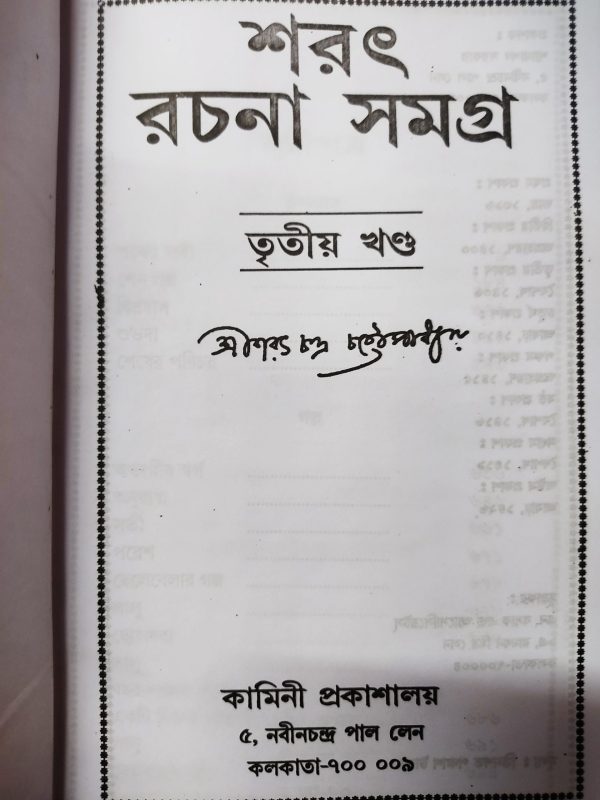 শরৎ
রচনা সমগ্র
তৃতীয় খণ্ড
শ্রীশরৎ চন্দ্র চট্টোপাধ্যায়
কামিনী প্রকাশালয়
৫, নবীনচন্দ্র পাল লেন
কলকাতা-৭০০ ০০৯